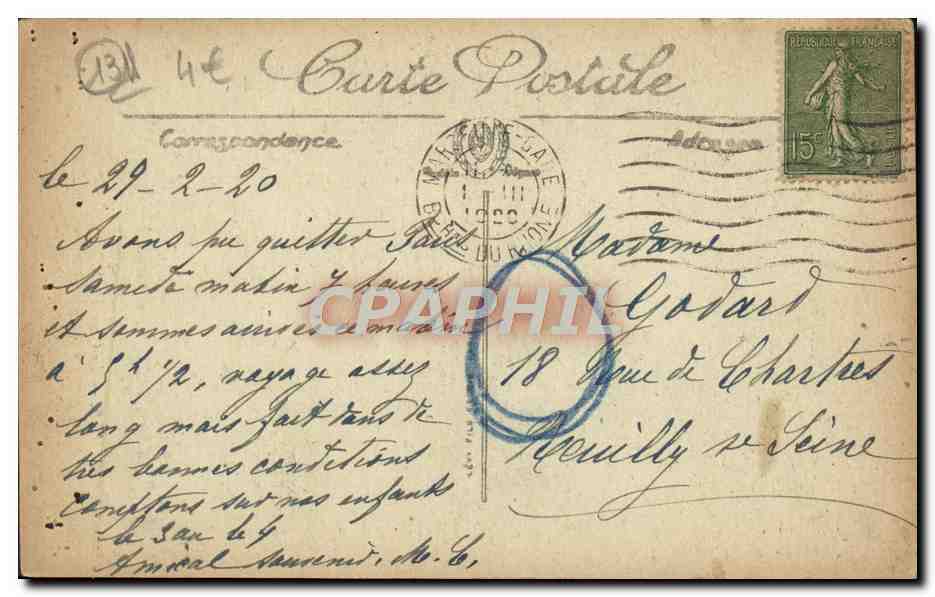 131
4€
Carte Postale
RÉPUBLIQUE FRANÇAISE
15c
Correspondance
Adresse
MARSEILLE-GARE
1 - III
1920
BCHES DU RHONE
le 29-2-20
Avons pu quitter Paris
samedi matin 7 heures
et sommes arrivés ce matin
à 5h 1/2, voyage assez
long mais fait dans de
très bonnes conditions
comptons sur nos enfants
le 3 ou le 4
Amical souvenir. M. C.
Madame
Godard
18 Rue de Chartres
Neuilly s/ Seine
LÉVY FILS
CPAPHIL